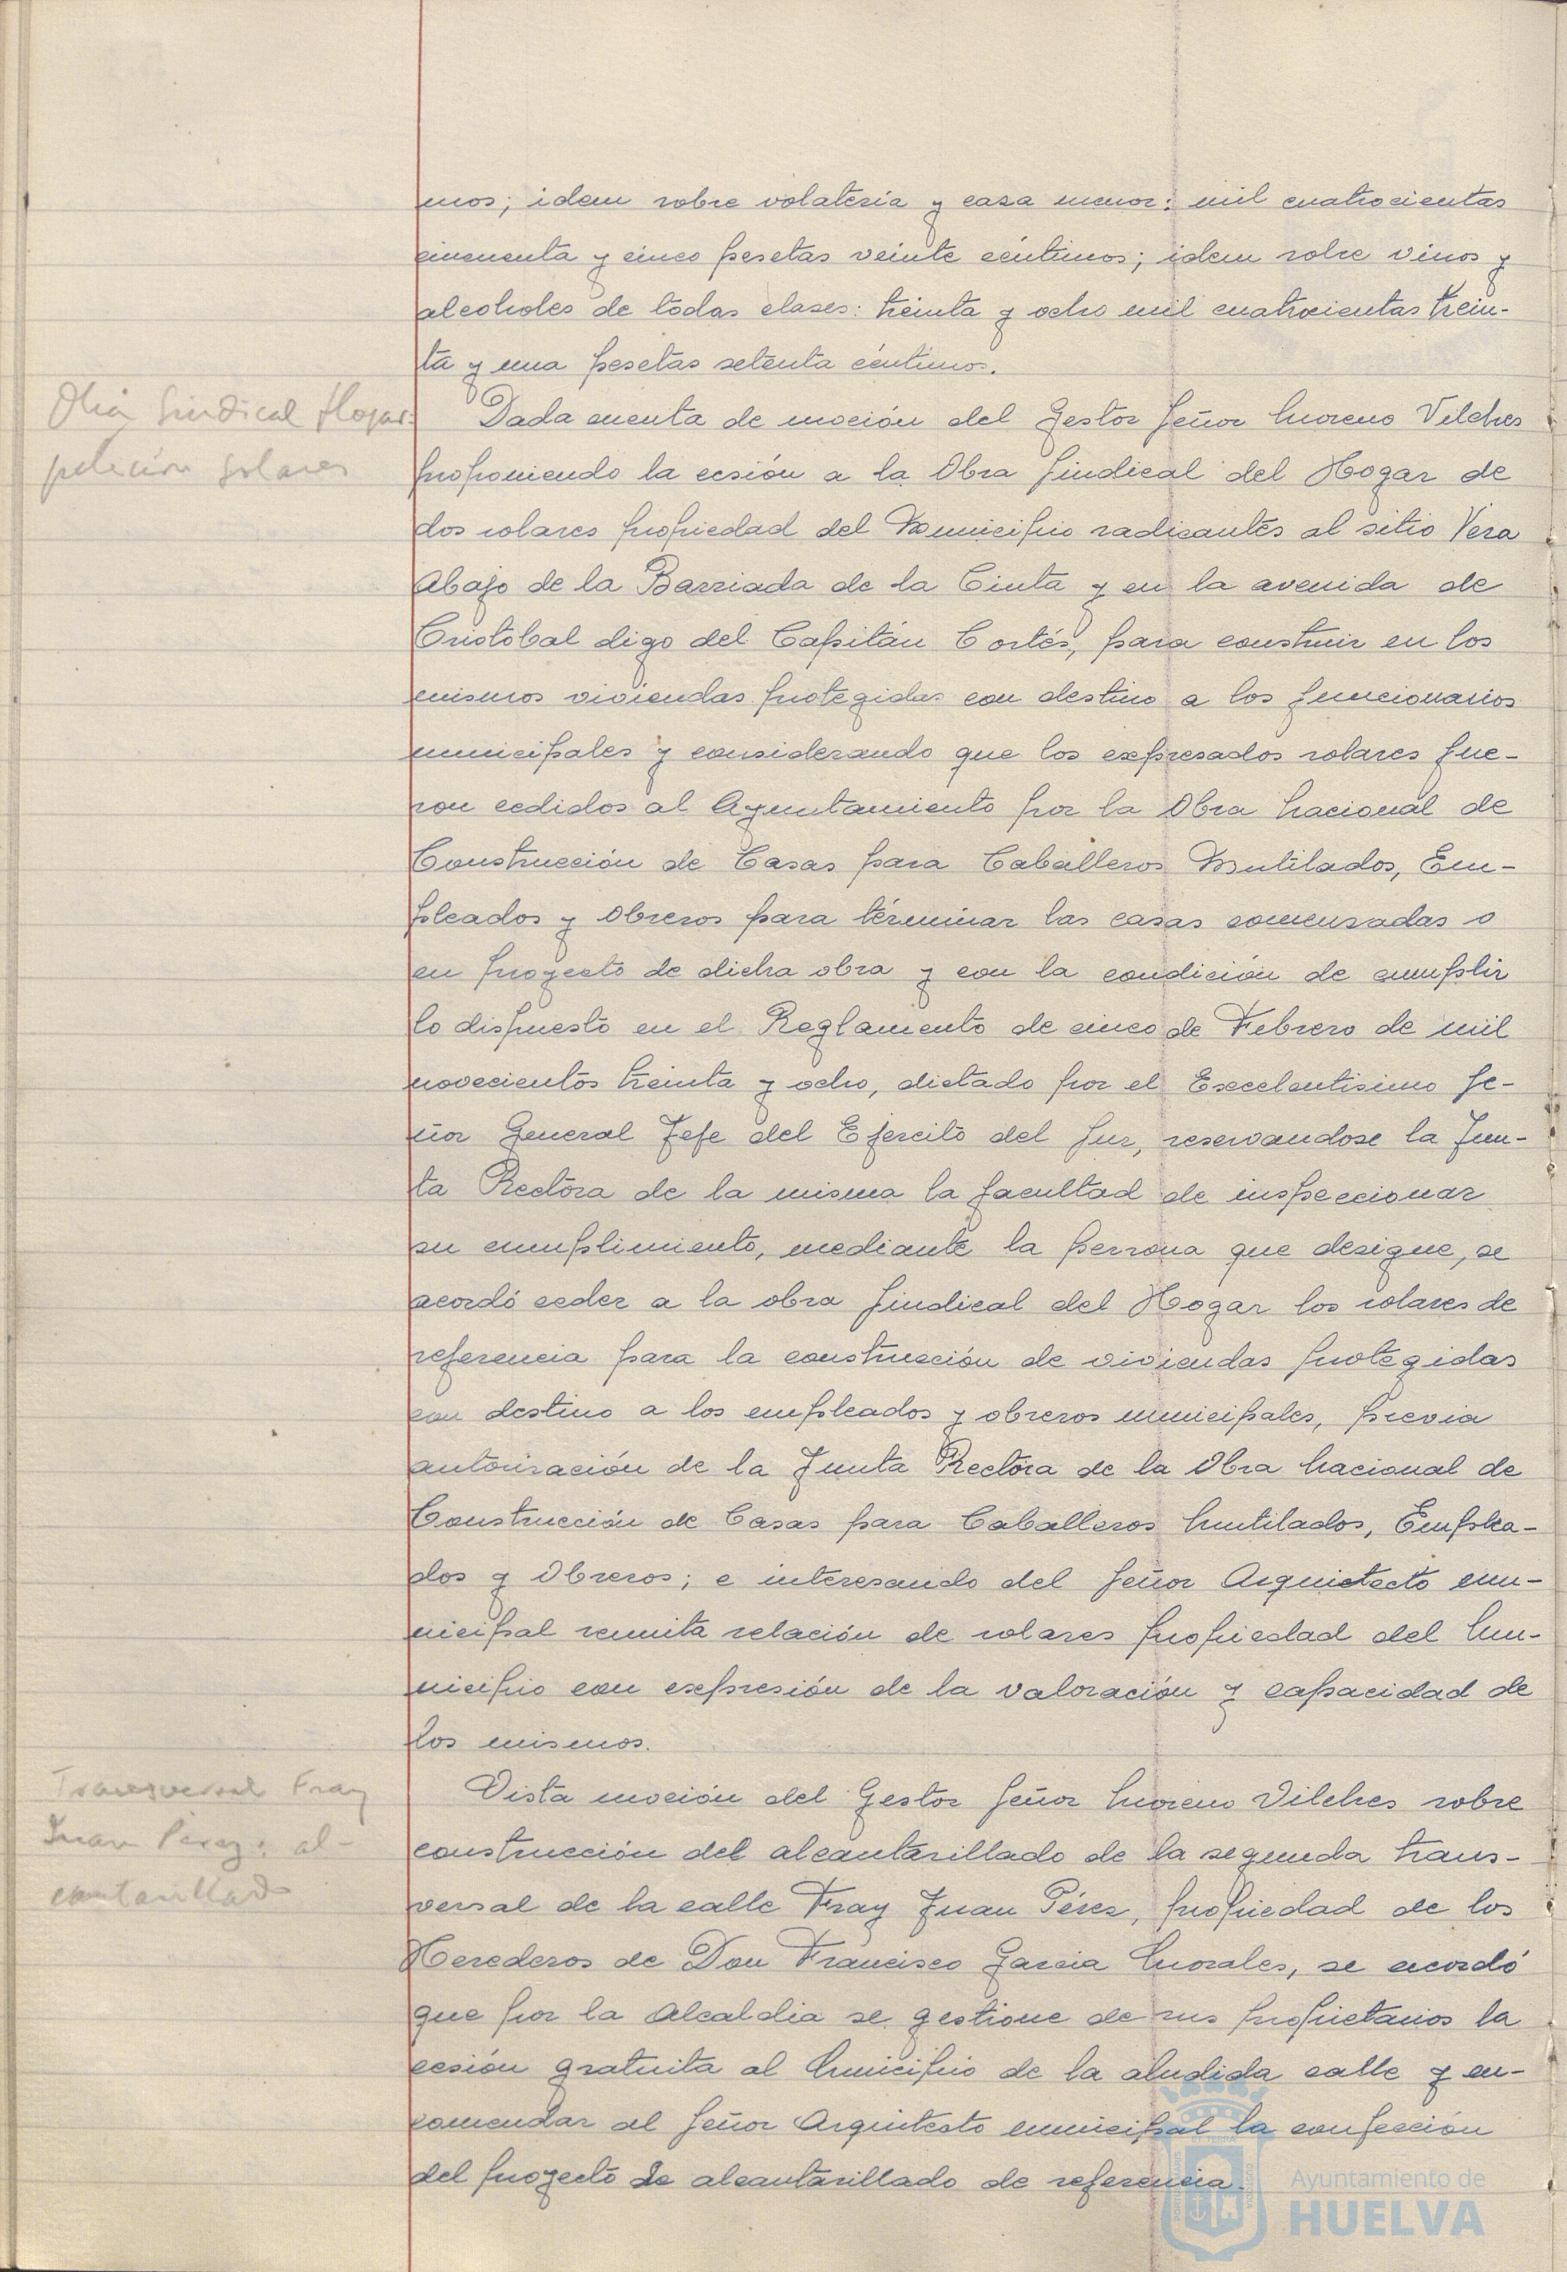 mos; idem sobre volatería y caza menor: mil cuatrocientas
cincuenta y cinco pesetas veinte céntimos; idem sobre vinos y
alcoholes de todas clases: treinta y ocho mil cuatrocientas trein-
ta y una pesetas setenta céntimos.
Obra Sindical Hogar:
petición solares
Dada cuenta de moción del Gestor Señor Moreno Vilches
proponiendo la cesión a la Obra Sindical del Hogar de
dos solares propiedad del Municipio radicantes al sitio Vera
Abajo de la Barriada de la Cinta y en la avenida de
Cristobal digo del Capitán Cortés, para construir en los
mismos viviendas protegidas con destino a los funcionarios
municipales y considerando que los expresados solares fue-
ron cedidos al Ayuntamiento por la Obra Nacional de
Construcción de Casas para Caballeros Mutilados, Em-
pleados y Obreros para terminar las casas comenzadas o
en proyecto de dicha obra y con la condición de cumplir
lo dispuesto en el Reglamento de cinco de Febrero de mil
novecientos treinta y ocho, dictado por el Excelentisimo Se-
ñor General Jefe del Ejercito del Sur, reservandose la Jun-
ta Rectora de la misma la facultad de inspeccionar
su cumplimiento, mediante la persona que designe, se
acordó ceder a la obra Sindical del Hogar los solares de
referencia para la construcción de viviendas protegidas
con destino a los empleados y obreros municipales, previa
autorización de la Junta Rectora de la Obra Nacional de
Construcción de Casas para Caballeros Mutilados, Emplea-
dos y Obreros; e interesando del Señor Arquitecto mu-
nicipal remita relación de solares propiedad del Mu-
nicipio con expresión de la valoración y capacidad de
los mismos.
Transversal Fray
Juan Pérez: al-
cantarillado
Vista moción del Gestor Señor Moreno Vilches sobre
construcción del alcantarillado de la segunda trans-
versal de la calle Fray Juan Pérez, propiedad de los
Herederos de Don Francisco Garcia Morales, se acordó
que por la Alcaldia se gestione de sus propietarios la
cesión gratuita al Municipio de la aludida calle y en-
comendar al Señor Arquitecto municipal la confección
del proyecto de alcantarillado de referencia.
Ayuntamiento de
HUELVA